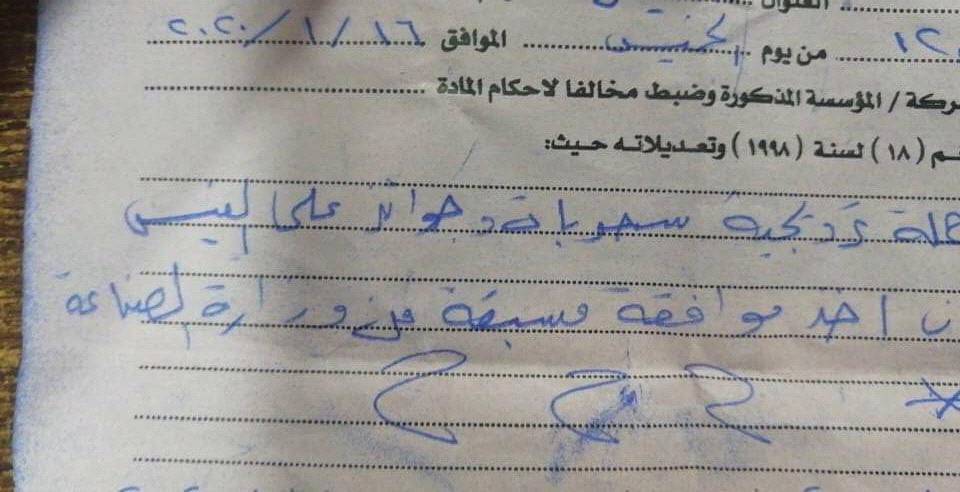 العنوان
١٢ من يوم الخميس الموافق ٢٠٢٠/١/١٦
ركة / المؤسسة المذكورة وضبط مخالفا لاحكام المادة
م (١٨) لسنة (١٩٩٨) وتعديلاته حيث:
ملة ترويجية سحوبات وجوائز على البنس
ن اخذ موافقة مسبقة من وزارة الصناعة